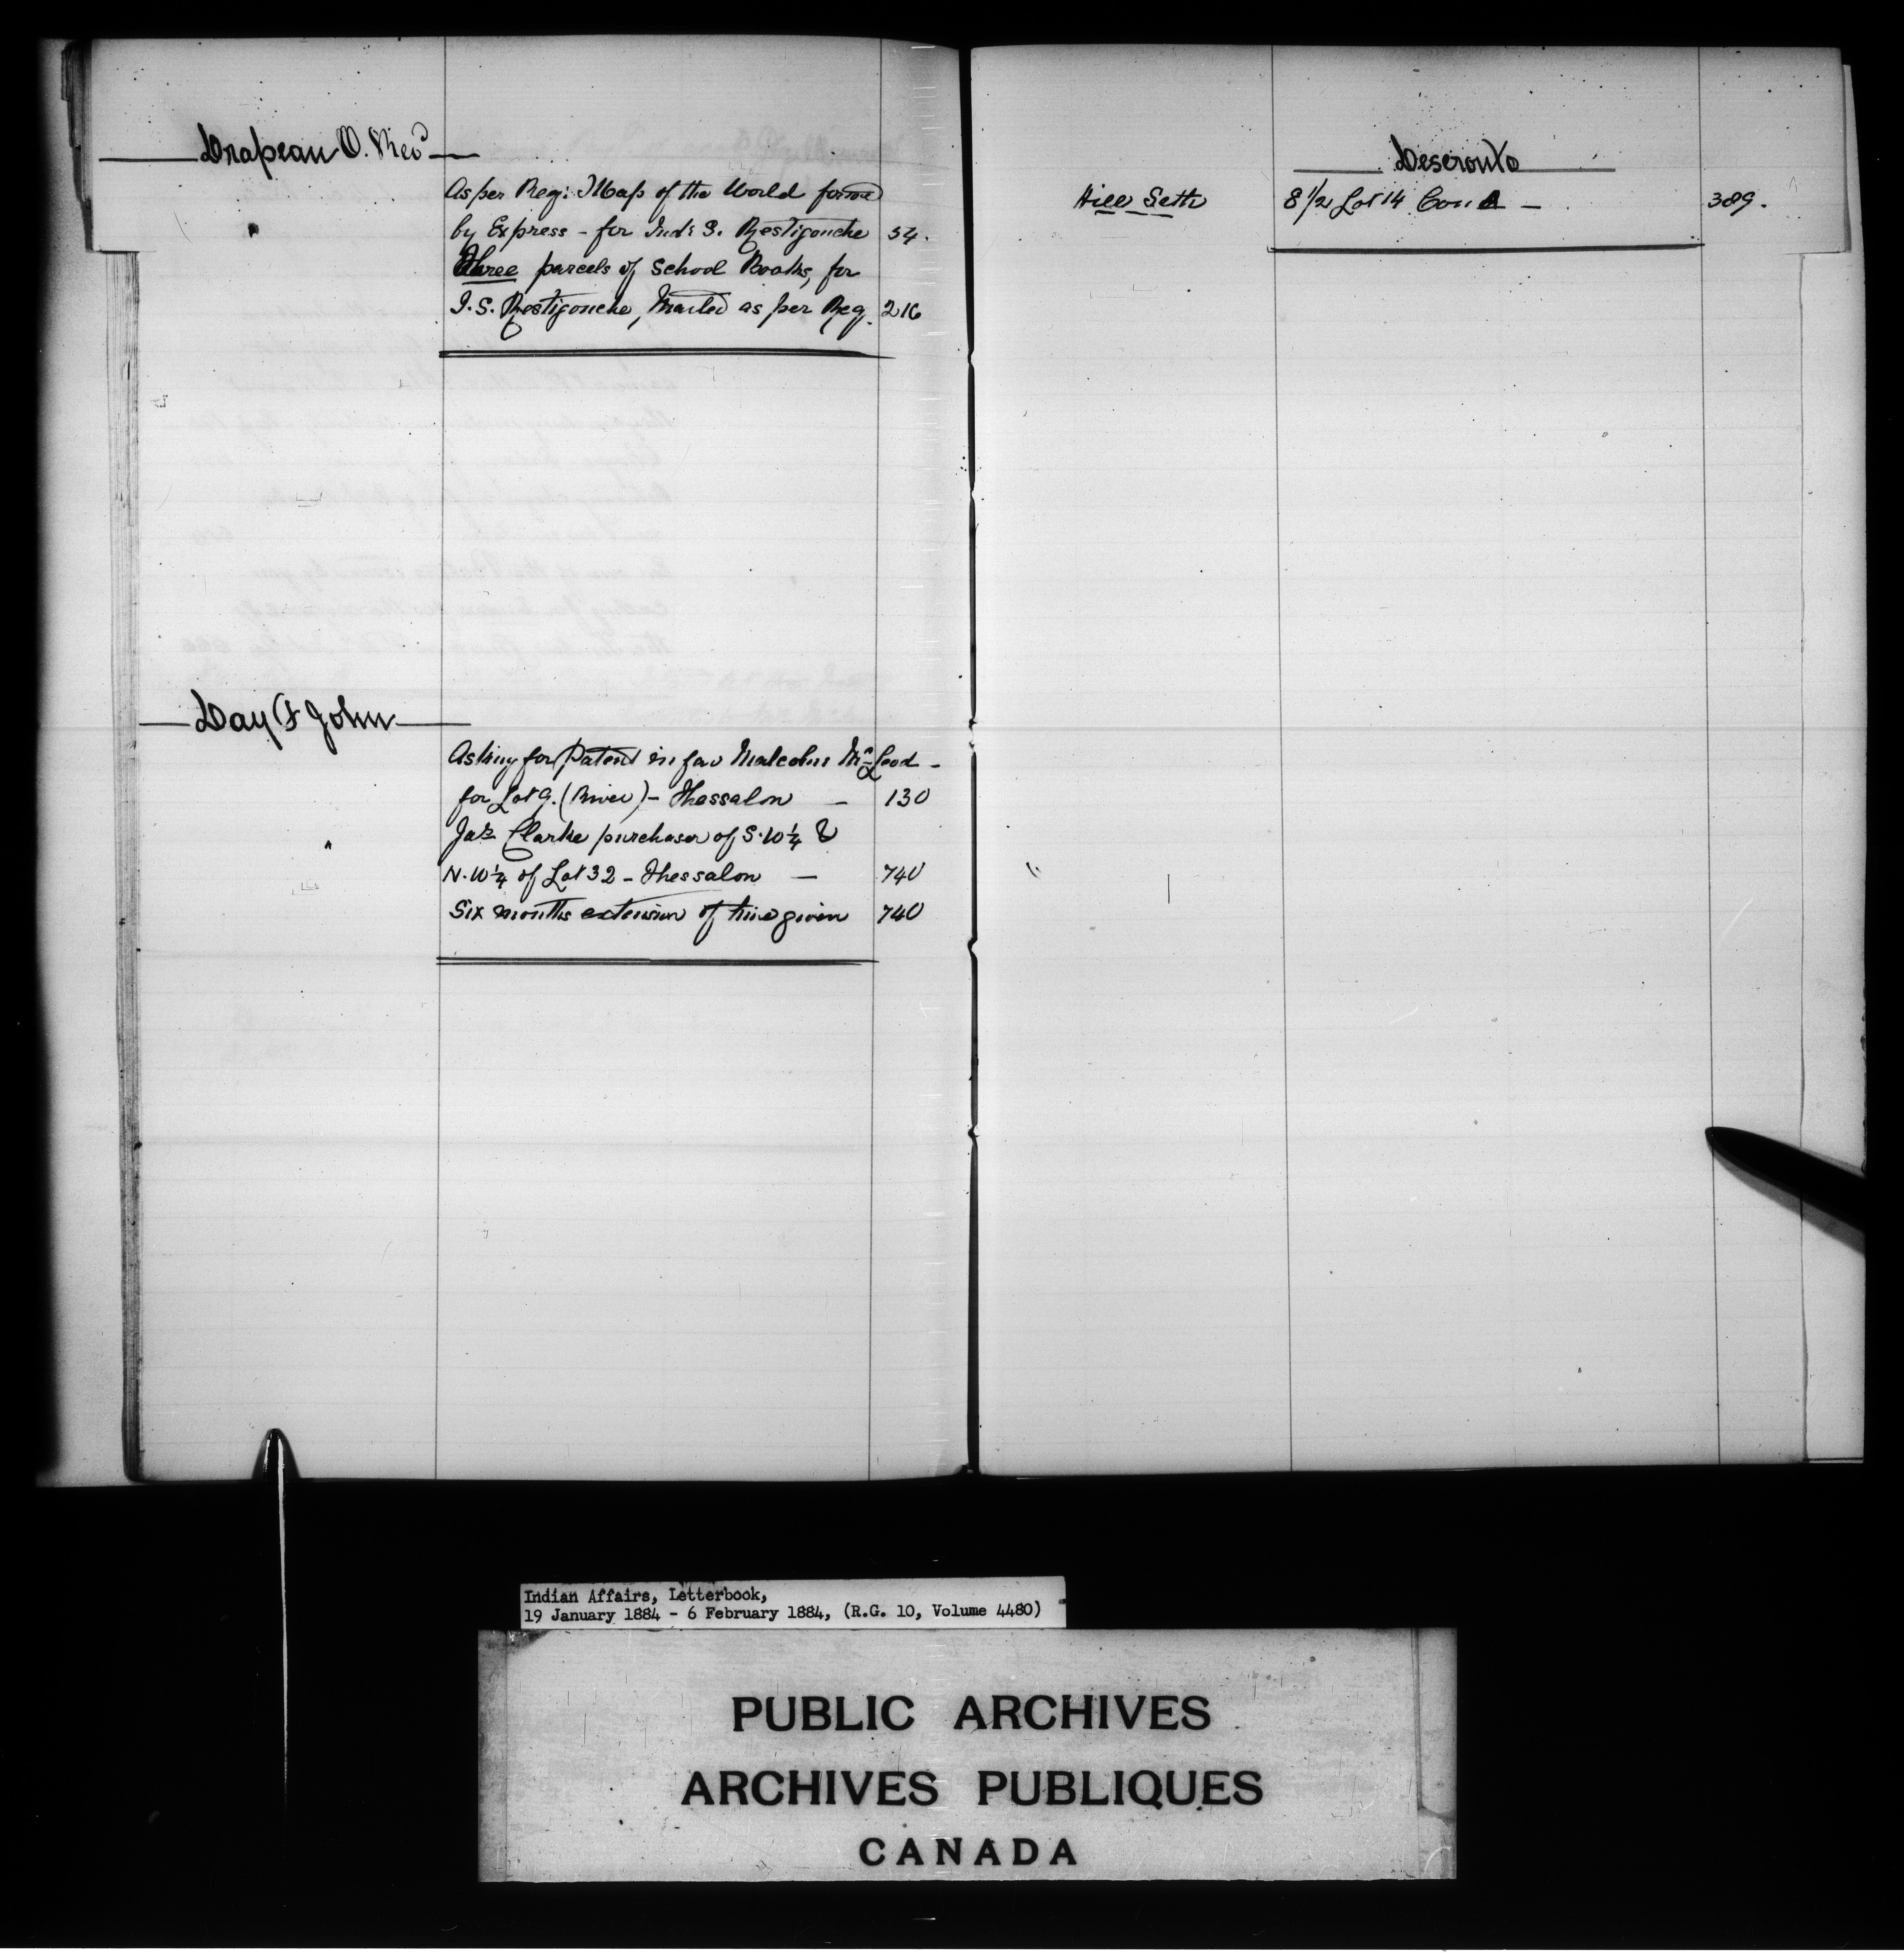 Drapeau O. Revd
As per Reg: Map of the World forwd
by Express - for Ind: S. Restigouche 54.
Three parcels of School Books, for
I.S. Restigouche, Mailed as per Reg. 216
Day & John
Asking for Patent in fav Malcolm McLeod -
for Lot 9. (River) - Thessalon - 130
" Jas Clarke purchaser of S.W¼ &
N.W¼ of Lot 32 - Thessalon - 740
Six months extension of time given 740
Deseronto
Hill Seth E 1/2 Lot 14 Con A - 389.
Indian Affairs, Letterbook,
19 January 1884 - 6 February 1884, (R.G. 10, Volume 4480)
PUBLIC ARCHIVES
ARCHIVES PUBLIQUES
CANADA